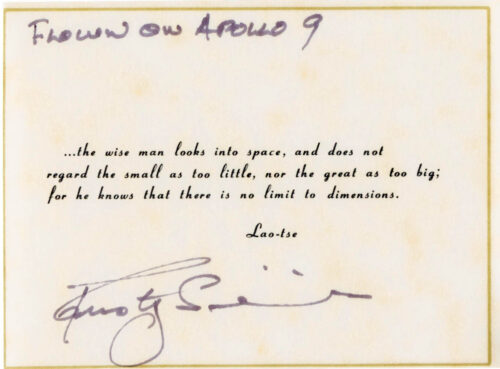 FLOWN ON APOLLO 9
...the wise man looks into space, and does not
regard the small as too little, nor the great as too big;
for he knows that there is no limit to dimensions.
Lao-tse
Rusty Schweickart